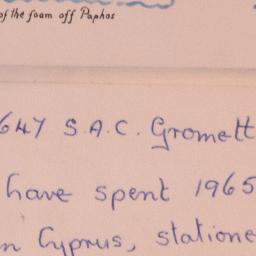 of the foam off Paphos
647 S.A.C. Gromett
have spent 1965
n Cyprus, statione